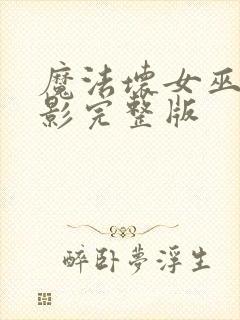 魔法壞女巫
影完整版
醉卧夢浮生